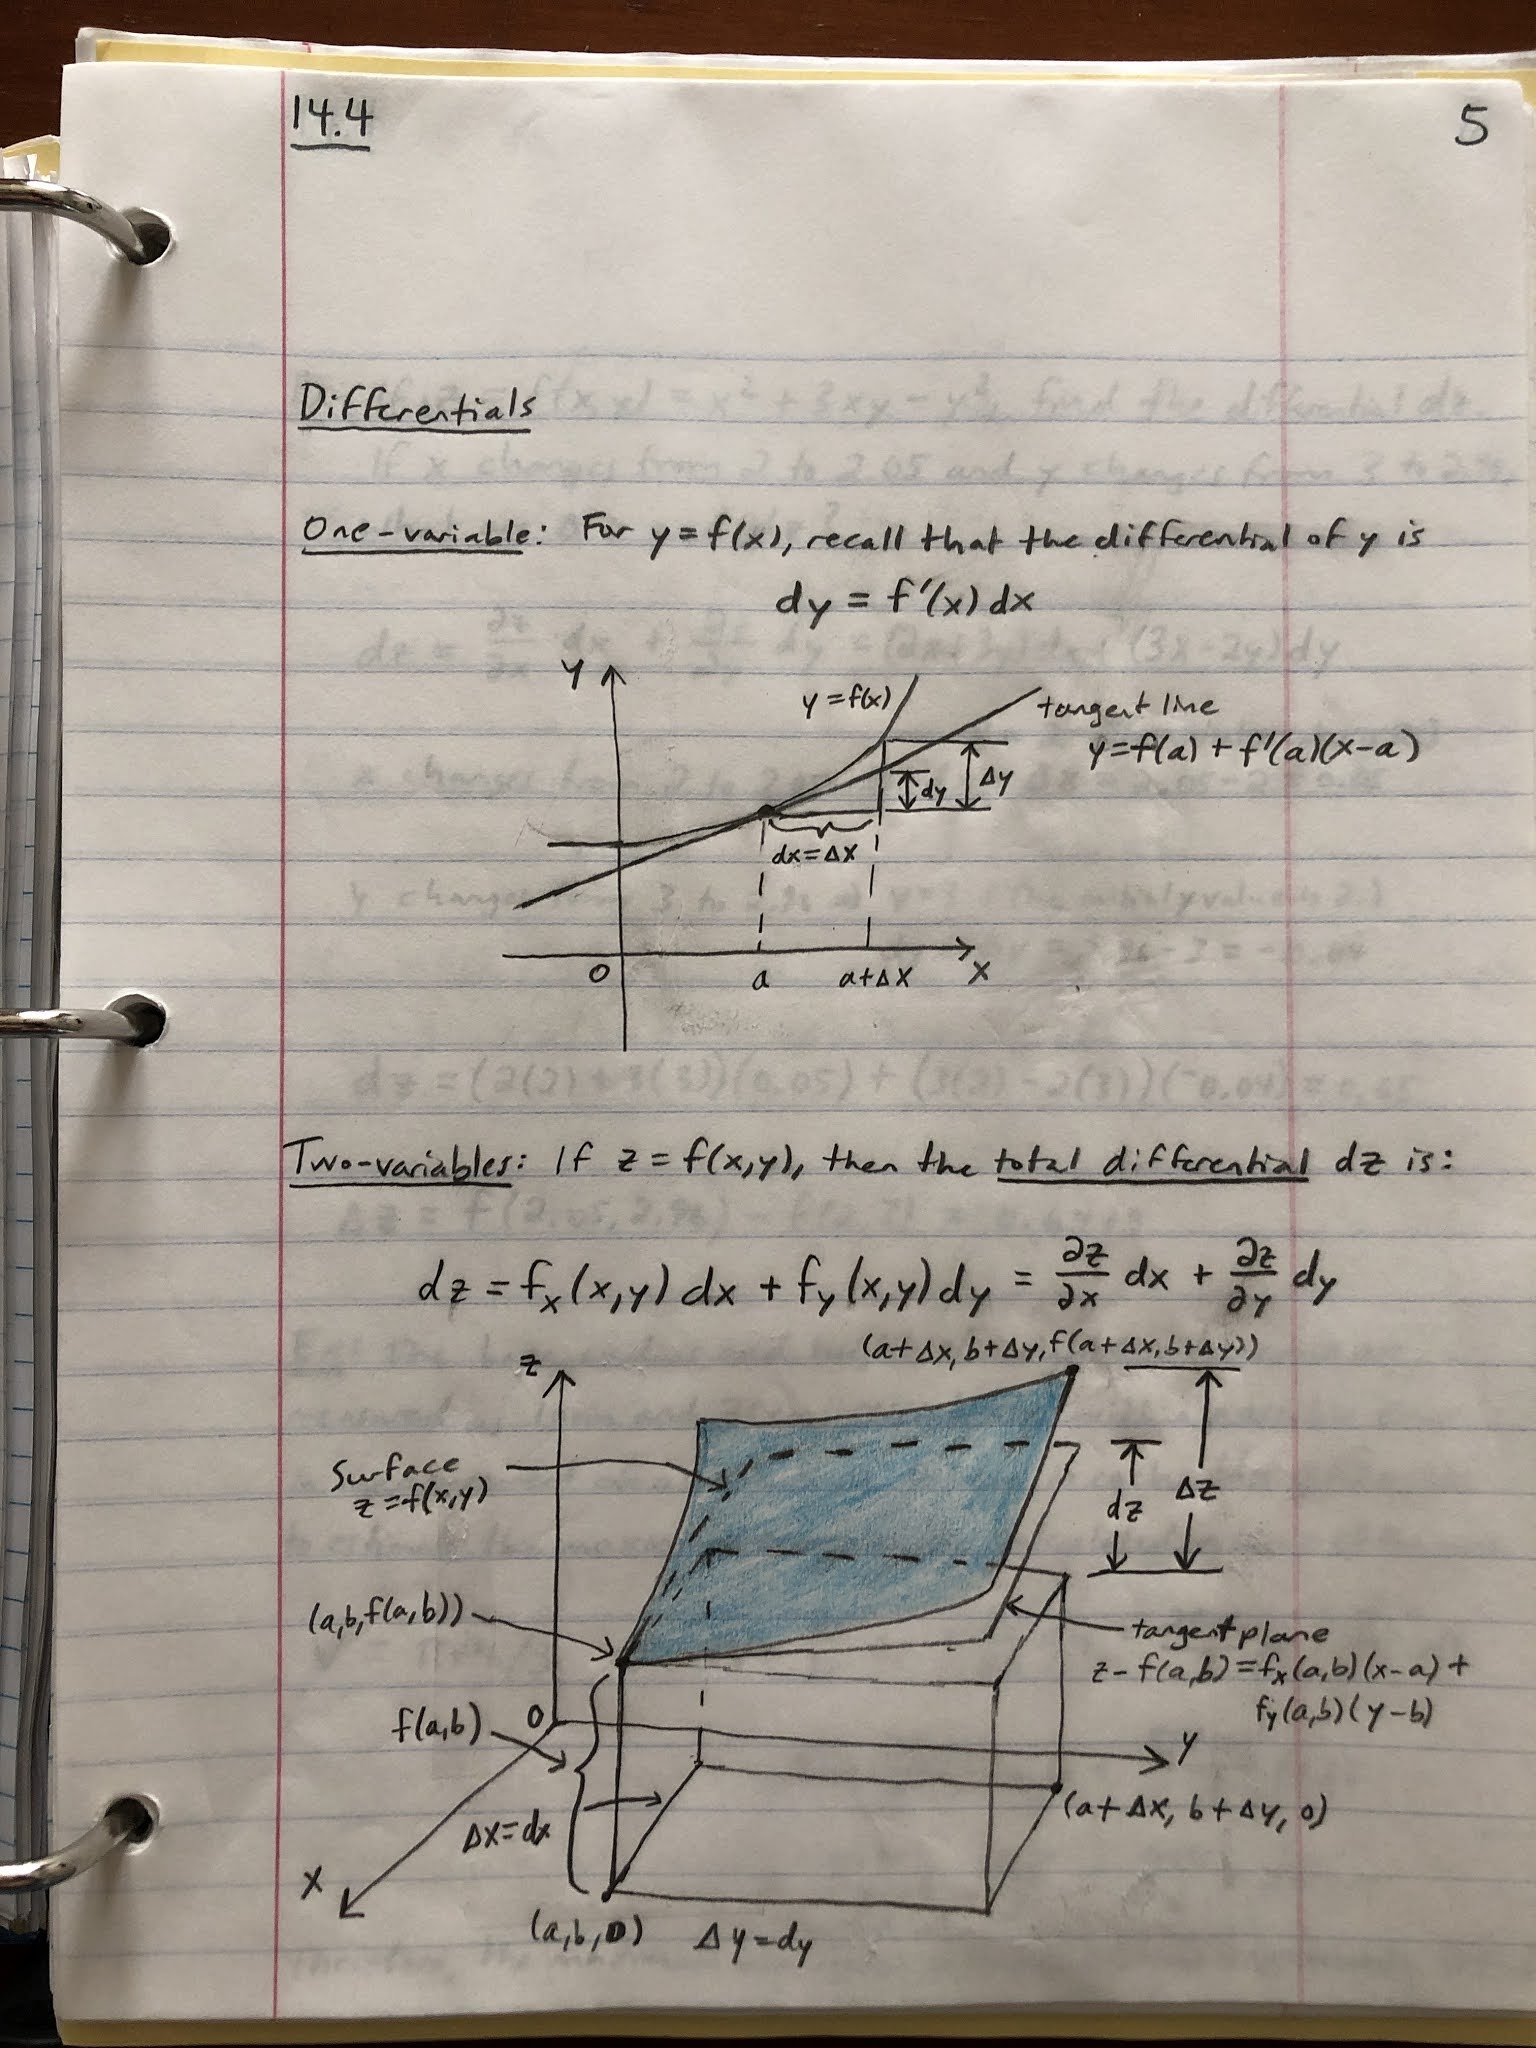 14.4
5
Differentials
One-variable: For y = f(x), recall that the differential of y is
dy = f'(x) dx
y
y = f(x)
tangent line
y = f(a) + f'(a)(x-a)
dy
Δy
dx = Δx
0
a
a+Δx
x
Two-variables: If z = f(x,y), then the total differential dz is:
dz = fx(x,y) dx + fy(x,y) dy = ∂z/∂x dx + ∂z/∂y dy
(a+Δx, b+Δy, f(a+Δx, b+Δy))
z
Surface
z = f(x,y)
dz
Δz
(a,b,f(a,b))
tangent plane
z - f(a,b) = fx(a,b)(x-a) +
fy(a,b)(y-b)
f(a,b)
0
y
(a+Δx, b+Δy, 0)
Δx = dx
x
(a,b,0)
Δy = dy